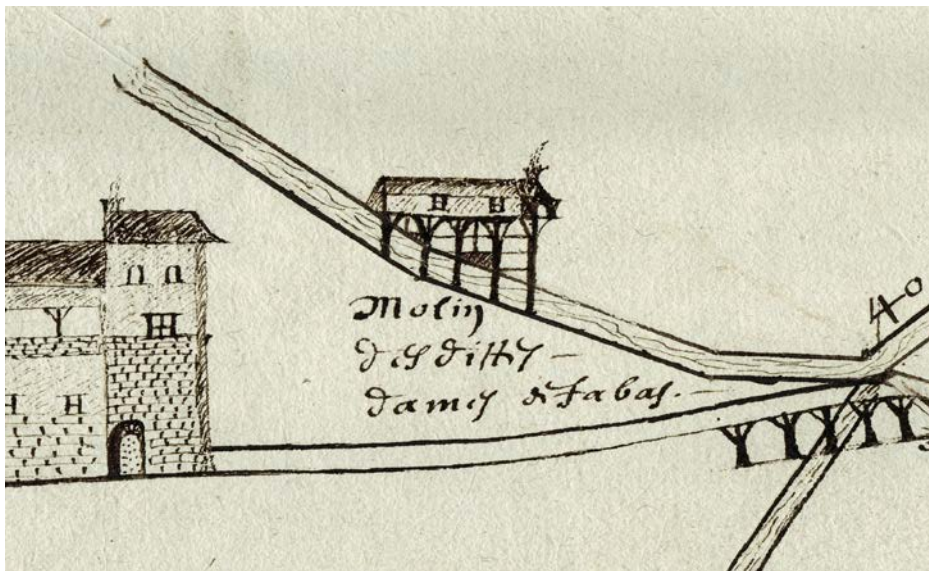 40
Molin
des dittes –
dames de Fabas.–